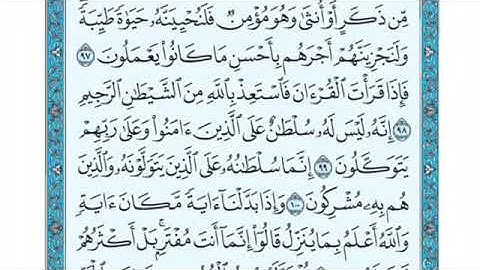 مِّن ذَكَرٍ أَوْ أُنثَىٰ وَهُوَ مُؤْمِنٌ فَلَنُحْيِيَنَّهُۥ حَيَوٰةً طَيِّبَةً
وَلَنَجْزِيَنَّهُمْ أَجْرَهُم بِأَحْسَنِ مَا كَانُوا۟ يَعْمَلُونَ ٩٧
فَإِذَا قَرَأْتَ ٱلْقُرْءَانَ فَٱسْتَعِذْ بِٱللَّهِ مِنَ ٱلشَّيْطَٰنِ ٱلرَّجِيمِ
٩٨ إِنَّهُۥ لَيْسَ لَهُۥ سُلْطَٰنٌ عَلَى ٱلَّذِينَ ءَامَنُوا۟ وَعَلَىٰ رَبِّهِمْ
يَتَوَكَّلُونَ ٩٩ إِنَّمَا سُلْطَٰنُهُۥ عَلَى ٱلَّذِينَ يَتَوَلَّوْنَهُۥ وَٱلَّذِينَ
هُم بِهِۦ مُشْرِكُونَ ١٠٠ وَإِذَا بَدَّلْنَآ ءَايَةً مَّكَانَ ءَايَةٍ
وَٱللَّهُ أَعْلَمُ بِمَا يُنَزِّلُ قَالُوٓا۟ إِنَّمَآ أَنتَ مُفْتَرٍۭ بَلْ أَكْثَرُهُمْ